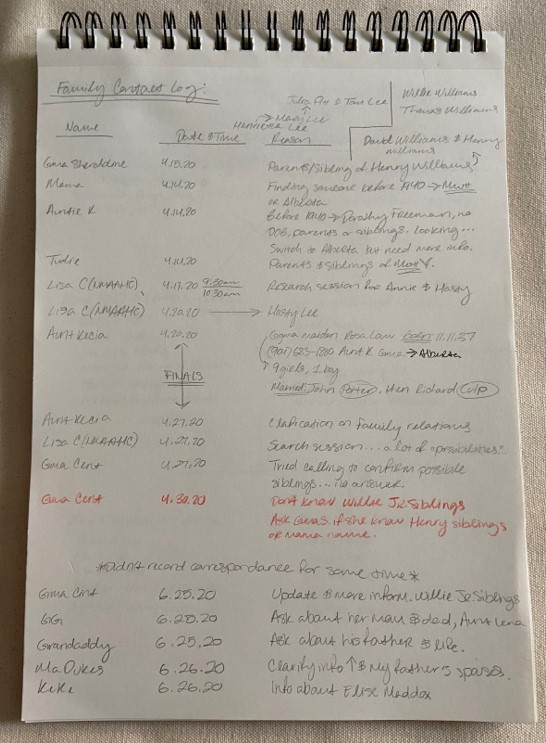 Family Contact Log:
Jules Ann & Tom Lee
Mary Lee
Henrietta Lee
Willie Williams
Thomas Williams
David Williams & Henry
Williams
Name Date & Time Reason
Gma 4.13.20 Parents/Sibling of Henry Williams
Mama 4.14.20 Finding someone before 1940 →
or Alberta
Auntie K 4.14.20 Before 1940 → Dorothy Freeman, no
DOB, parents or siblings. Looking...
Switch to Alberta but need more info.
4.14.20 Parents & siblings of
Lisa C (NMAAHC) 4.17.20 9:30am Research session for Annie & Hasty
10:30am
Lisa C (NMAAHC) 4.20.20 → Hasty Lee
Aunt Kecia 4.20.20 maiden Rosa Law born 11.11.37
Aunt K Gma → Alberta
9 girls, 1 boy
FINALS
Named John Porter, then Richard Culp
Aunt Kecia 4.27.20 Clafication on family relations
Lisa C (NMAAHC) 4.27.20 Search session... a lot of "possibilities".
Gma Cent 4.27.20 Tried calling to confirm possible
siblings... no answer.
Gma Cent 4.30.20 Don't know Willie Jr. Siblings
Ask if she know Henry siblings
or mama name.
*Didn't record correspondance for some time*
Gma Cint 6.25.20 Update & more inform. Willie Jr Siblings
GiG 6.25.20 Ask about her mom & dad, Aunt Lena
Grandaddy 6.25.20 Ask about his father & life.
Ma Dukes 6.26.20 Clarify info ↑ & my father's spouses.
KeKe 6.26.20 Info about Elise Maddox